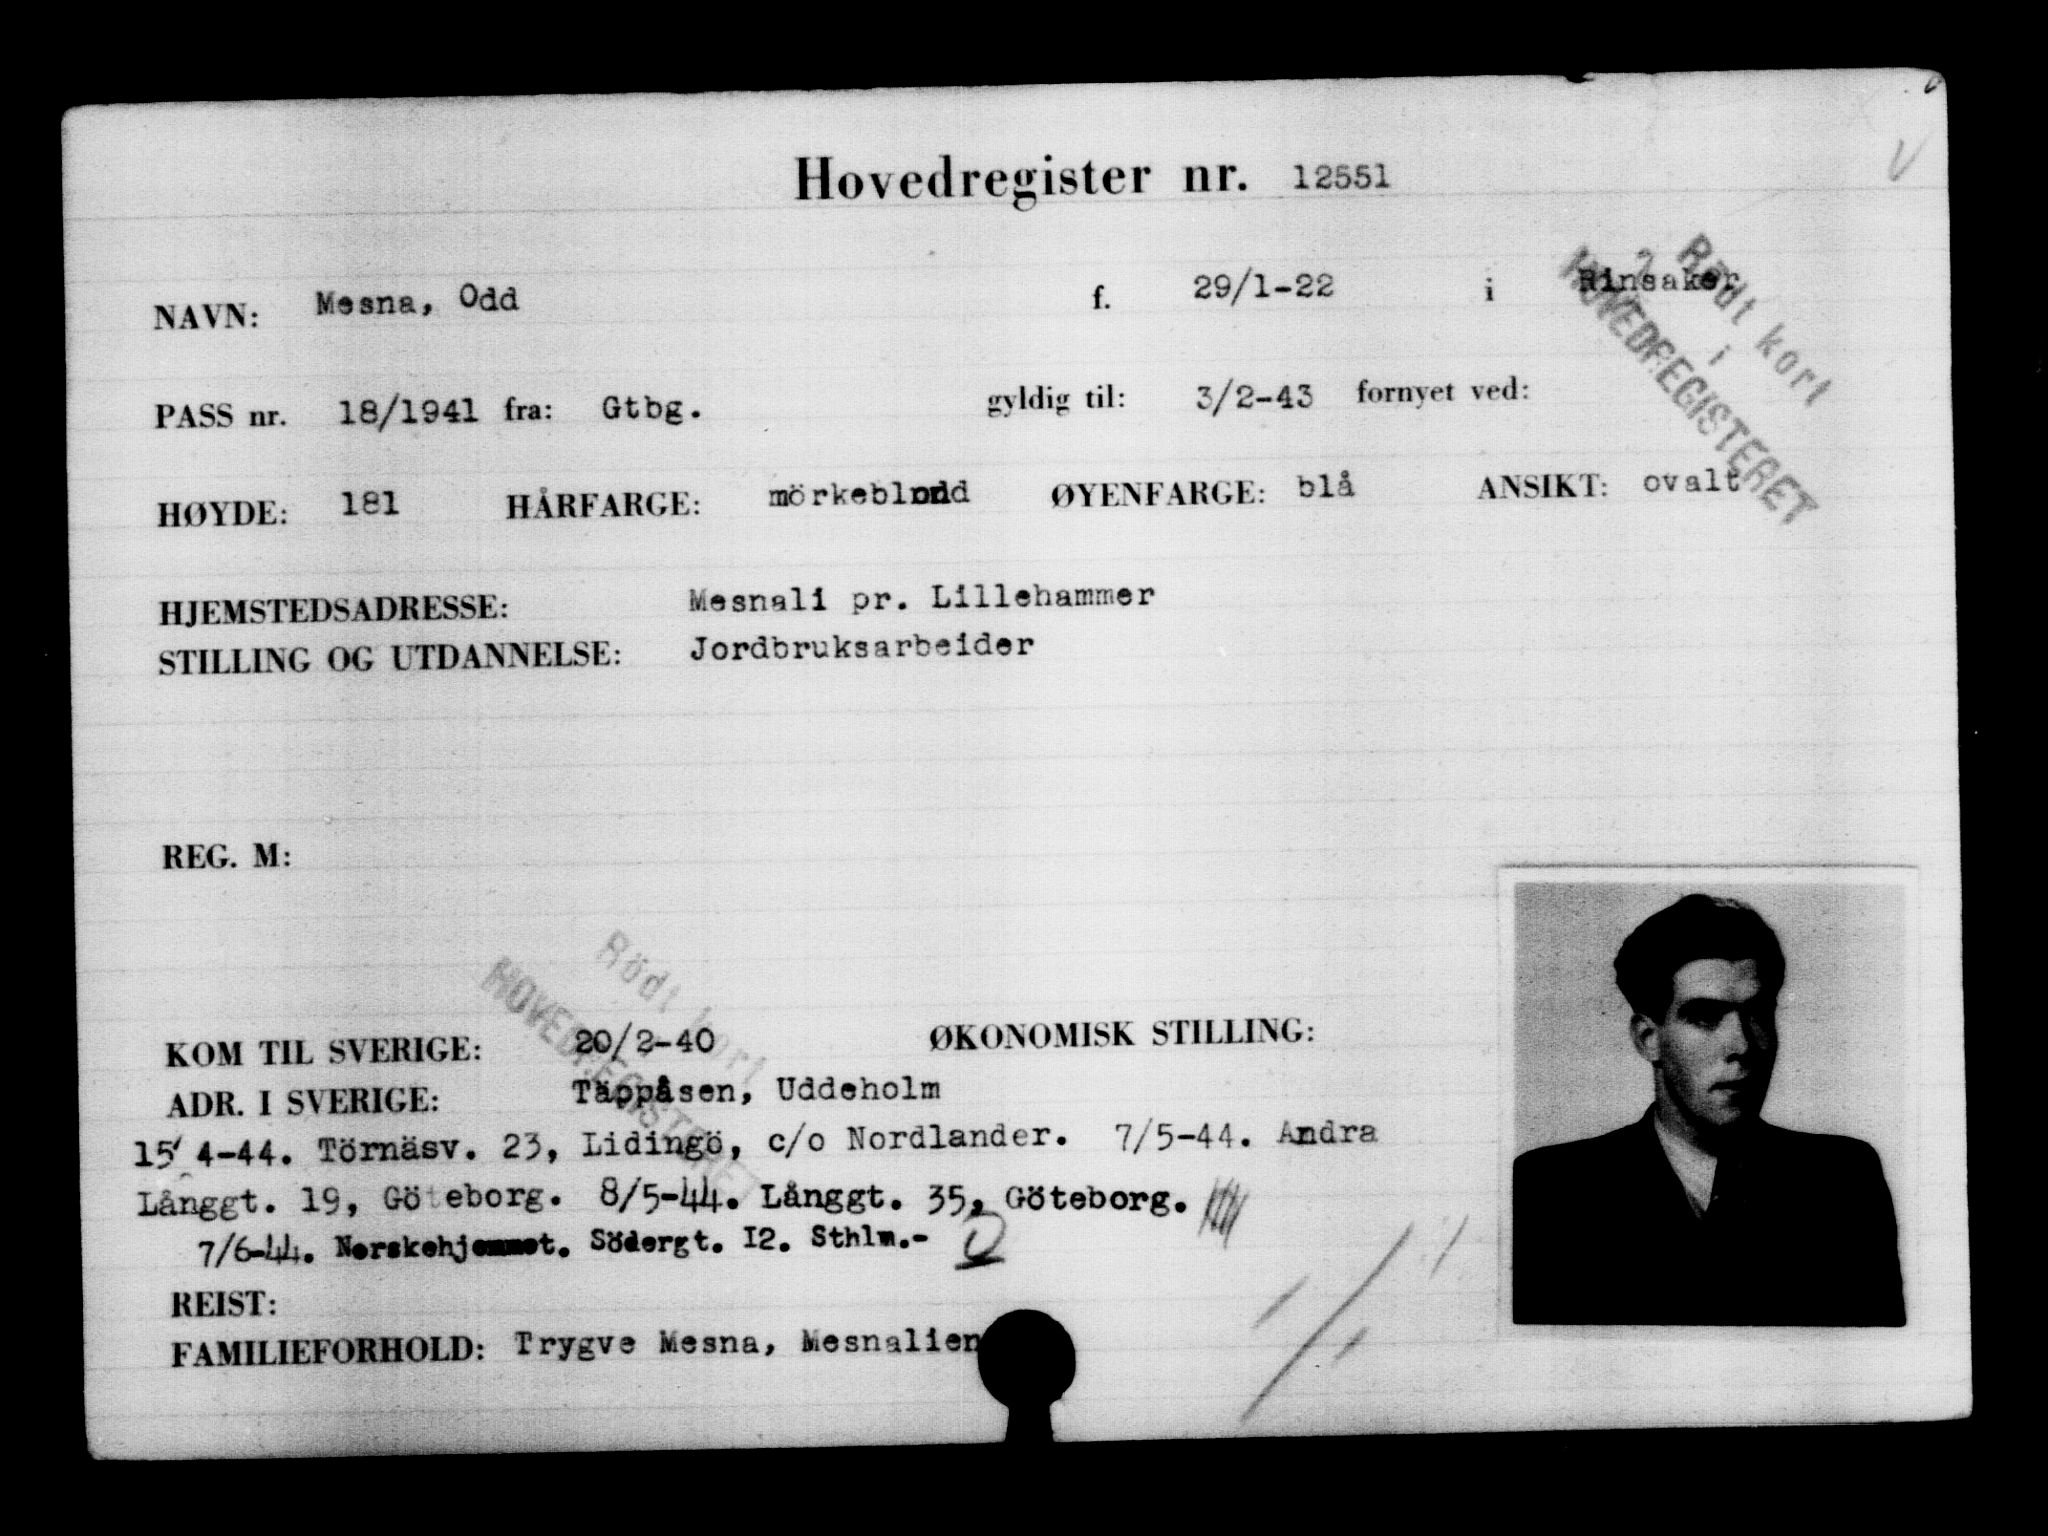 Hovedregister nr. 12551
NAVN: Mesna, Odd f. 29/1-22 i Rinsaker
Rödt kort
i
HOVEDREGISTERET
PASS nr. 18/1941 fra: Gtbg. gyldig til: 3/2-43 fornyet ved:
HØYDE: 181 HÅRFARGE: mörkeblond ØYENFARGE: blå ANSIKT: ovalt
HJEMSTEDSADRESSE: Mesnali pr. Lillehammer
STILLING OG UTDANNELSE: Jordbruksarbeider
REG. M:
Rödt kort
HOVEDREGISTERET
KOM TIL SVERIGE: 20/2-40 ØKONOMISK STILLING:
ADR. I SVERIGE: Täppåsen, Uddeholm
15/4-44. Törnäsv. 23, Lidingö, c/o Nordlander. 7/5-44. Andra
Långgt. 19, Göteborg. 8/5-44. Långgt. 35, Göteborg.
7/6-44. Norskehjemmet. Södergt. 12. Sthlm.-
REIST:
FAMILIEFORHOLD: Trygve Mesna, Mesnalien